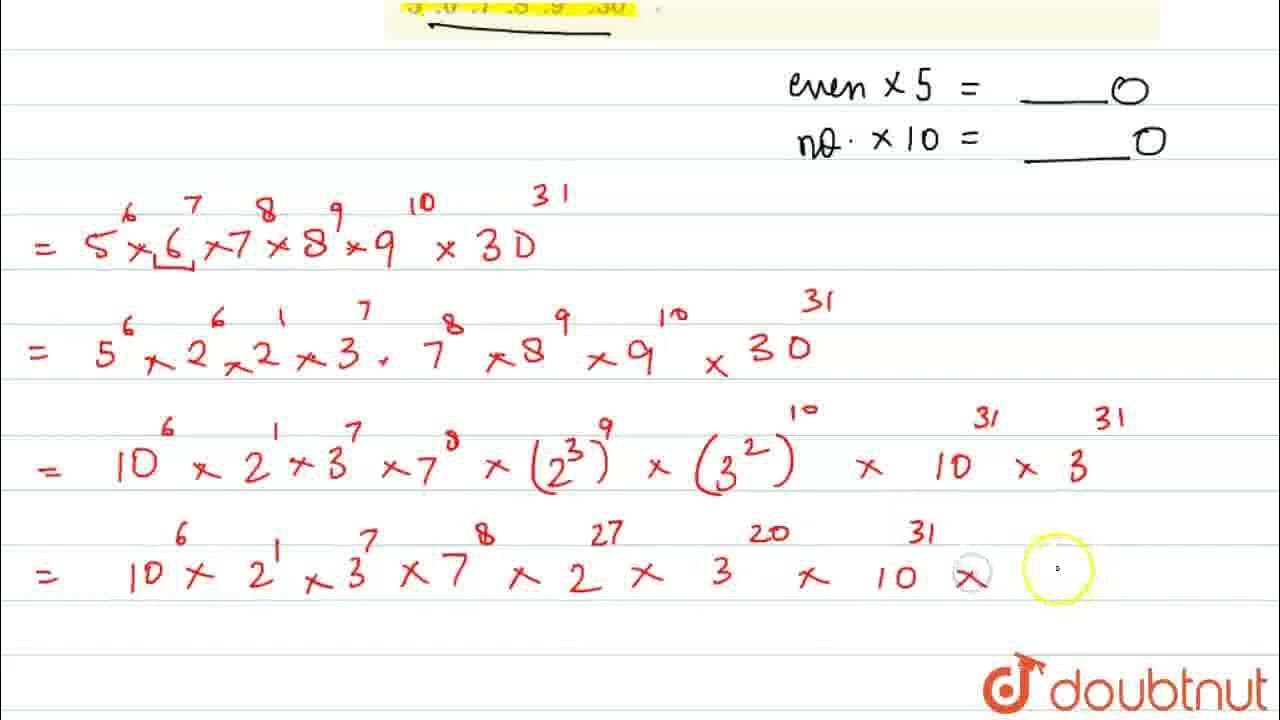 5 .6 .7 .8 .9 .30
even × 5 = ____0
no. × 10 = ____0
= 5^6 × 6^7 × 7^8 × 8^9 × 9^10 × 30^31
= 5^6 × 2^6 × 2^1 × 3^7 . 7^8 × 8^9 × 9^10 × 30^31
= 10^6 × 2^1 × 3^7 × 7^8 × (2^3)^9 × (3^2)^10 × 10^31 × 3^31
= 10^6 × 2^1 × 3^7 × 7^8 × 2^27 × 3^20 × 10^31 ×
doubtnut